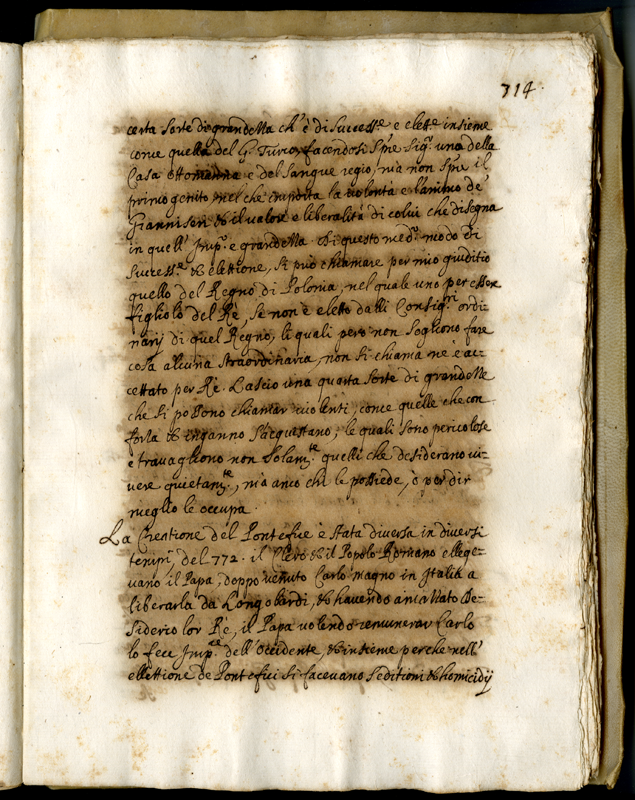 314.
certa sorte di grandezza ch'è di success.e e elett.e insieme
come quella del G. Turco, facendosi s.pre Sig.r uno della
Casa ottomanna e del sangue regio, mà non s.pre il
primo genito, nel che importa la volontà e l'animo de
Giannizeri & il valore e liberalità di colui che disegna
in quell' Imp.o e grandezza. Di questo med.o modo di
success.e & elettione, si può chiamare per mio giuditio
quello del Regno di Polonia, nel quale uno per esser
figliolo del Rè, se non è eletto dalli Consig.ri ordi-
narij di quel Regno, li quali però non sogliono fare
cosa alcuna straordinaria, non si chiama nè è ac-
cettato per Rè. Lascio una quarta sorte di grandezze
che si possono chiamar violenti, come quelle che con
forza & inganno s'acquistano, le quali sono pericolose
e travagliono non solam.te quelli che desiderano vi-
vere quietam.te, mà anco chi le possiede, ò per dir
meglio le occupa.
La Creatione del Pontefice è stata diversa in diversi
tempi, del 772. il Clero & il Popolo Romano elegge-
vano il Papa, doppo venuto Carlo magno in Italia a
liberarla da Longobardi, & havendo ammazzato De-
siderio lor Rè, il Papa volendo remunerar Carlo
lo fece Imp.re dell'Occidente, & insieme perche nell'
elettione de Pontefici si facevano seditioni & homicidij